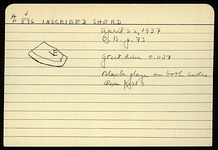 P 896 INSCRIBED SHERD
April 22, 1937
B. p. 73
Greatest dim. 0.037
Black glaze on both sides